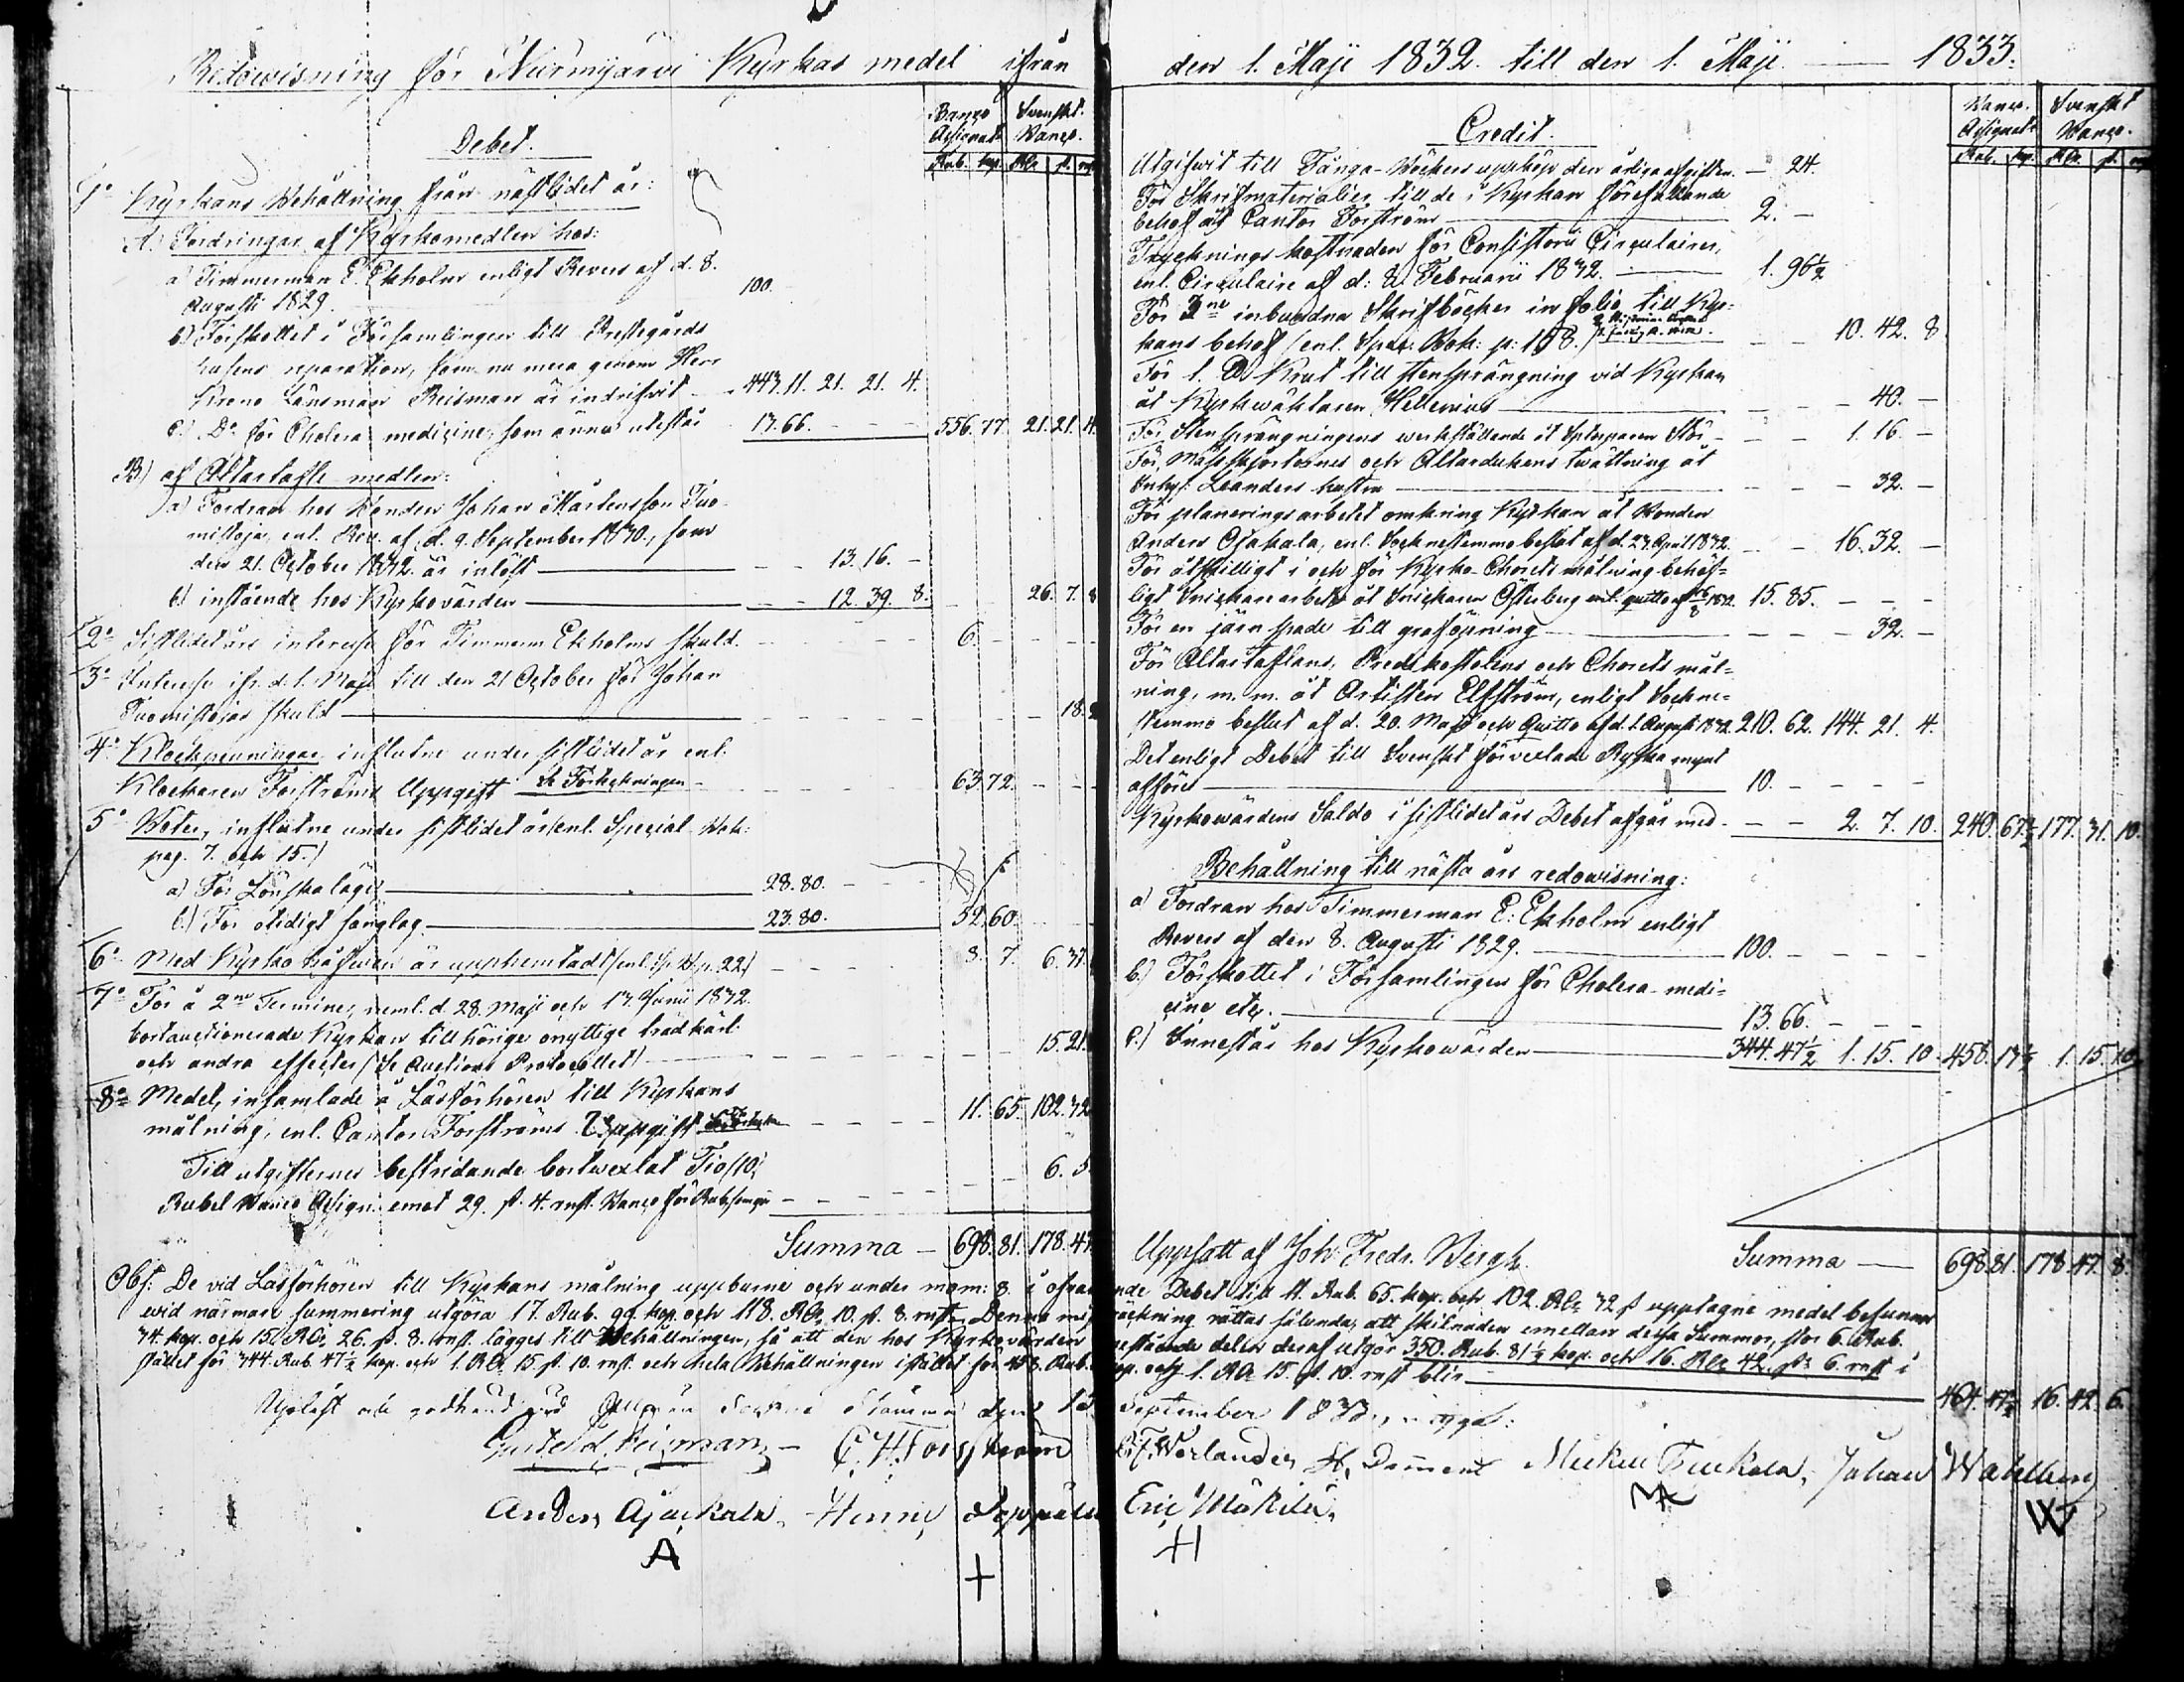 Redowisning för Nurmijärvi Kyrkas medel ifrån
Banco Assignat. Svenskt Banco.
Debet.
Rub. kop. Rdr. s. rst
1o Kyrkans Behållning från nästlidet år:
A. Fordringar af Kyrkomedlen hos:
a) Timmerman E. Ekholm enligt Revers af d. 8.
Augusti 1829. 100.
b) Förskottet i Församlingen till Prestegårds
husens reparation, som nu mera genom Herr
Krono Länsman Reisman är indrifvit 443. 11. 21. 21. 4.
c.) Do för Cholera medicine, som ännu utestår 13. 66. 556. 77. 21. 21. 4
B) af Altartafle medlen:
a) Fordran hos Bonden Johan Mårtensson Tuo-
mistoja, enl. Rev. af d. 9. September 1830., som
den 21. October 1832. är inlöst 13. 16. -
b) innstående hos Kyrkovärden 12. 39. 8. 26. 7. 8
2o Sistlidet års interesse för Timmerm Ekholms skuld. 6.
3o Interesse ifr. d. 1. Maji till den 21 October för Johan
Tuomistojas skuld 18.
4o Klockpenningar influtne under sistlidet år enl.
Klockaren Forströms Uppgift Se Förtekningen 63. 72.
5o Böter, influtne under sistlidet år (enl. Special Bok:
pag. 7. och 15.)
a) För Lönskaläger 28. 80.
b.) För otidigt sänglag 23. 80. 52. 60.
6o Med Kyrko håfwen är upphemtadt (enl. Sp. B. p. 22) 8. 7. 6. 37.
7o För å 2ne Terminer, neml. d. 28. Maji och 17. Junii 1832.
bortauctionerade Kyrkan tillhörige onyttige trädkärl
och andra effecter (Se Auctions Protocollet) 15. 21.
8o Medel, insamlade å Läsförhören till Kyrkans
målning, enl. Cantor Forströms Uppgift 11. 65. 102. 32
Till utgifternes bestridande bortwexlat Tio (10)
Rubel Banco Assign. emot 29. s. 4. rnst. Banco för Rubeln 6. 5
Summa 698. 81. 178. 47
Obs: De vid Läsförhören till Kyrkans målning uppburne och under mom: 8. i ofvan
wid närmare summering utgöra 17. Rub. 99. kop. och 118. Rdr. 10. s. 8. rnst. Denna mis
34. kop. och 15. Rdr. 26. s. 8. rnst. lägges till Behållningen, så att den hos Kyrkovärden
stället för 344. Rub. 47½ kop. och 1. Rdr. 15. s. 10. rnst. och hela Behållningen istället för 458. Rub.
Upläst och godkänd vid
Gustaf Reisman - C. H. Forsström
Anders Ajackala, Henric Seppälä
A +
den 1. Maji 1832. till den 1. Maji 1833.
Banco. Assignat. Svenskt Banco.
Credit.
Rub. kop. Rdr. s.
Utgifwit till Fånga-Böckers uppköp den årliga afgiften. 24.
För Skrifmaterialier till de i Kyrkan förefallande
behof åt Cantor Forström 2. -
Tryckningskostnaden för Consistorii Circulairer,
enl. Circulaire af d: 8. Februarii 1832. 1. 96½
För 3ne inbundna Skrifböcker in folio till Kyr-
kans behof (enl. Spec. Bok: p: 158.) 10. 42. 8
För 1. ℔ Krut till stensprängning vid Kyrkan
åt Kyrkwäktaren Hellenius 40. -
För Stensprängningens werkställande åt 1. 16. -
För Mässkjortornes och Altardukens twättning åt
Leanders hustru 32. -
För planeringsarbetet omkring Kyrkan åt Bonden
Anders Ojakala, enl. Sockne stemmo beslut af d. 23. April 1832. 16. 32. -
För åtskilligt i och för Kyrko-Chorets målning behöf-
ligt Snickare arbete åt Snickaren Österberg enl. quitto af 1832. 15. 85. - - -
För en järnspade till graföpning 32. -
För Altartaflans, Predikostolens och Chorets mål-
ning, m. m. åt Artisten Elfström, enligt Sockne-
stemmo beslut af d. 20. Maji och Quitto af d. 1. Augusti 1832. 210. 62. 144. 21. 4.
Det enligt Debet till Svenskt förvexlade Ryska mynt
afföres 10. - - - -
Kyrkowärdens Saldo i sistlidet års Debet afgår med 2. 7. 10. 240. 67½ 177. 31. 10.
Behållning till nästa års redowisning:
a) Fordran hos Timmerman E. Ekholm enligt
Revers af den 8. Augusti 1829. 100. - - - -
b.) Förskottet i Församlingen för Cholera-medi-
cine etc. 13. 66. - - -
c.) Innestår hos Kyrkowärden 344. 47½ 1. 15. 10 458. 13½ 1. 15. 10
Uppsatt af Joh: Fredr. Bergh. Summa 698 81 178. 47. 8.
nde Debet till 11. Rub. 65. kop. och 102. Rdr. 32 s. upptagne medel befunnos
räckning rättas sålunda, att skilnaden emellan dessa Summor, stor 6. Rub.
nestående delen deraf utgör 350. Rub. 81½ kop. och 16. Rdr 42. s. 6. rnst i
op. och 1. Rdr 15. s. 10. rnst blir
464. 47½ 16. 42. 6.
September 1833,
Michel Johan Wahlberg
Eric Mäkilä,
H W